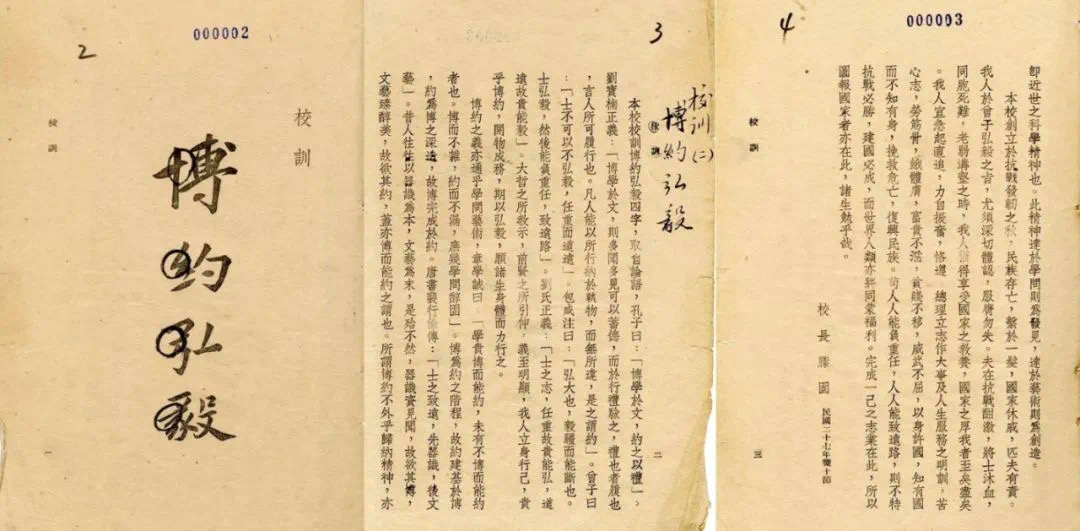 2
000002
校訓
博約弘毅
校訓
3
校訓(二)
博約弘毅
校訓
二
本校校訓博約弘毅四字，取自論語，孔子曰：「博學於文，約之以禮」。
劉寶楠正義：「博學於文，則多聞多見可以蓄德，而於行禮驗之，禮也者履也
，言人所可履行也。凡人能以所行納於軌物，而無所違，是之謂約」。曾子曰
：「士不可以不弘毅，任重而道遠」。包咸注曰：「弘大也，毅疆而能斷也。
士弘毅，然後能負重任，致遠路」。劉氏正義：「士之志，任重故貴能弘，道
遠故貴能毅」。大哲之所教示，前賢之所引伸，義至明顯，我人立身行己，貴
乎博約，開物成務，期以弘毅，願諸生身體而力行之。
博約之義亦通乎學問藝術，章學誠曰：「學貴博而能約，未有不博而能約
者也。博而不雜，約而不漏，庶幾學問醇固」。博爲約之階程，故約建基於博
，約爲博之深造，故博完成於約。唐書裴行儉傳：「士之致遠，先器識，後文
藝」。昔人往往以器識爲本，文藝爲末，是殆不然，器識賓見聞，故欲其博，
文藝臻醇美，故欲其約，蓋亦博而能約之謂也。所謂博約不外乎歸納精神，亦
4
000003
校訓
三
卽近世之科學精神也。此精神達於學問則爲發見，達於藝術則爲創造。
本校創立於抗戰發軔之秋，民族存亡，繫於一髮，國家休戚，匹夫有責。
我人於曾子弘毅之言，尤須深切體認，服膺勿失。夫在抗戰酣激，將士沐血，
同胞死難，老弱溝壑之時，我人猶得享受國家之教養，國家之厚我者至矣盡矣
。我人宜急起直追，力自振奮，恪遵　總理立志作大事及人生服務之明訓，苦
心志，勞筋骨，餓體膚，富貴不淫，貧賤不移，威武不屈，以身許國，知有國
而不知有身，挽救危亡，復興民族。苟人人能負重任，人人能致遠路，則不特
抗戰必勝，建國必成，而世界人類亦將同蒙福利。完成一己之志業在此，所以
圖報國家者亦在此，諸生勉乎哉。
校長滕固　民國二十七年雙十節